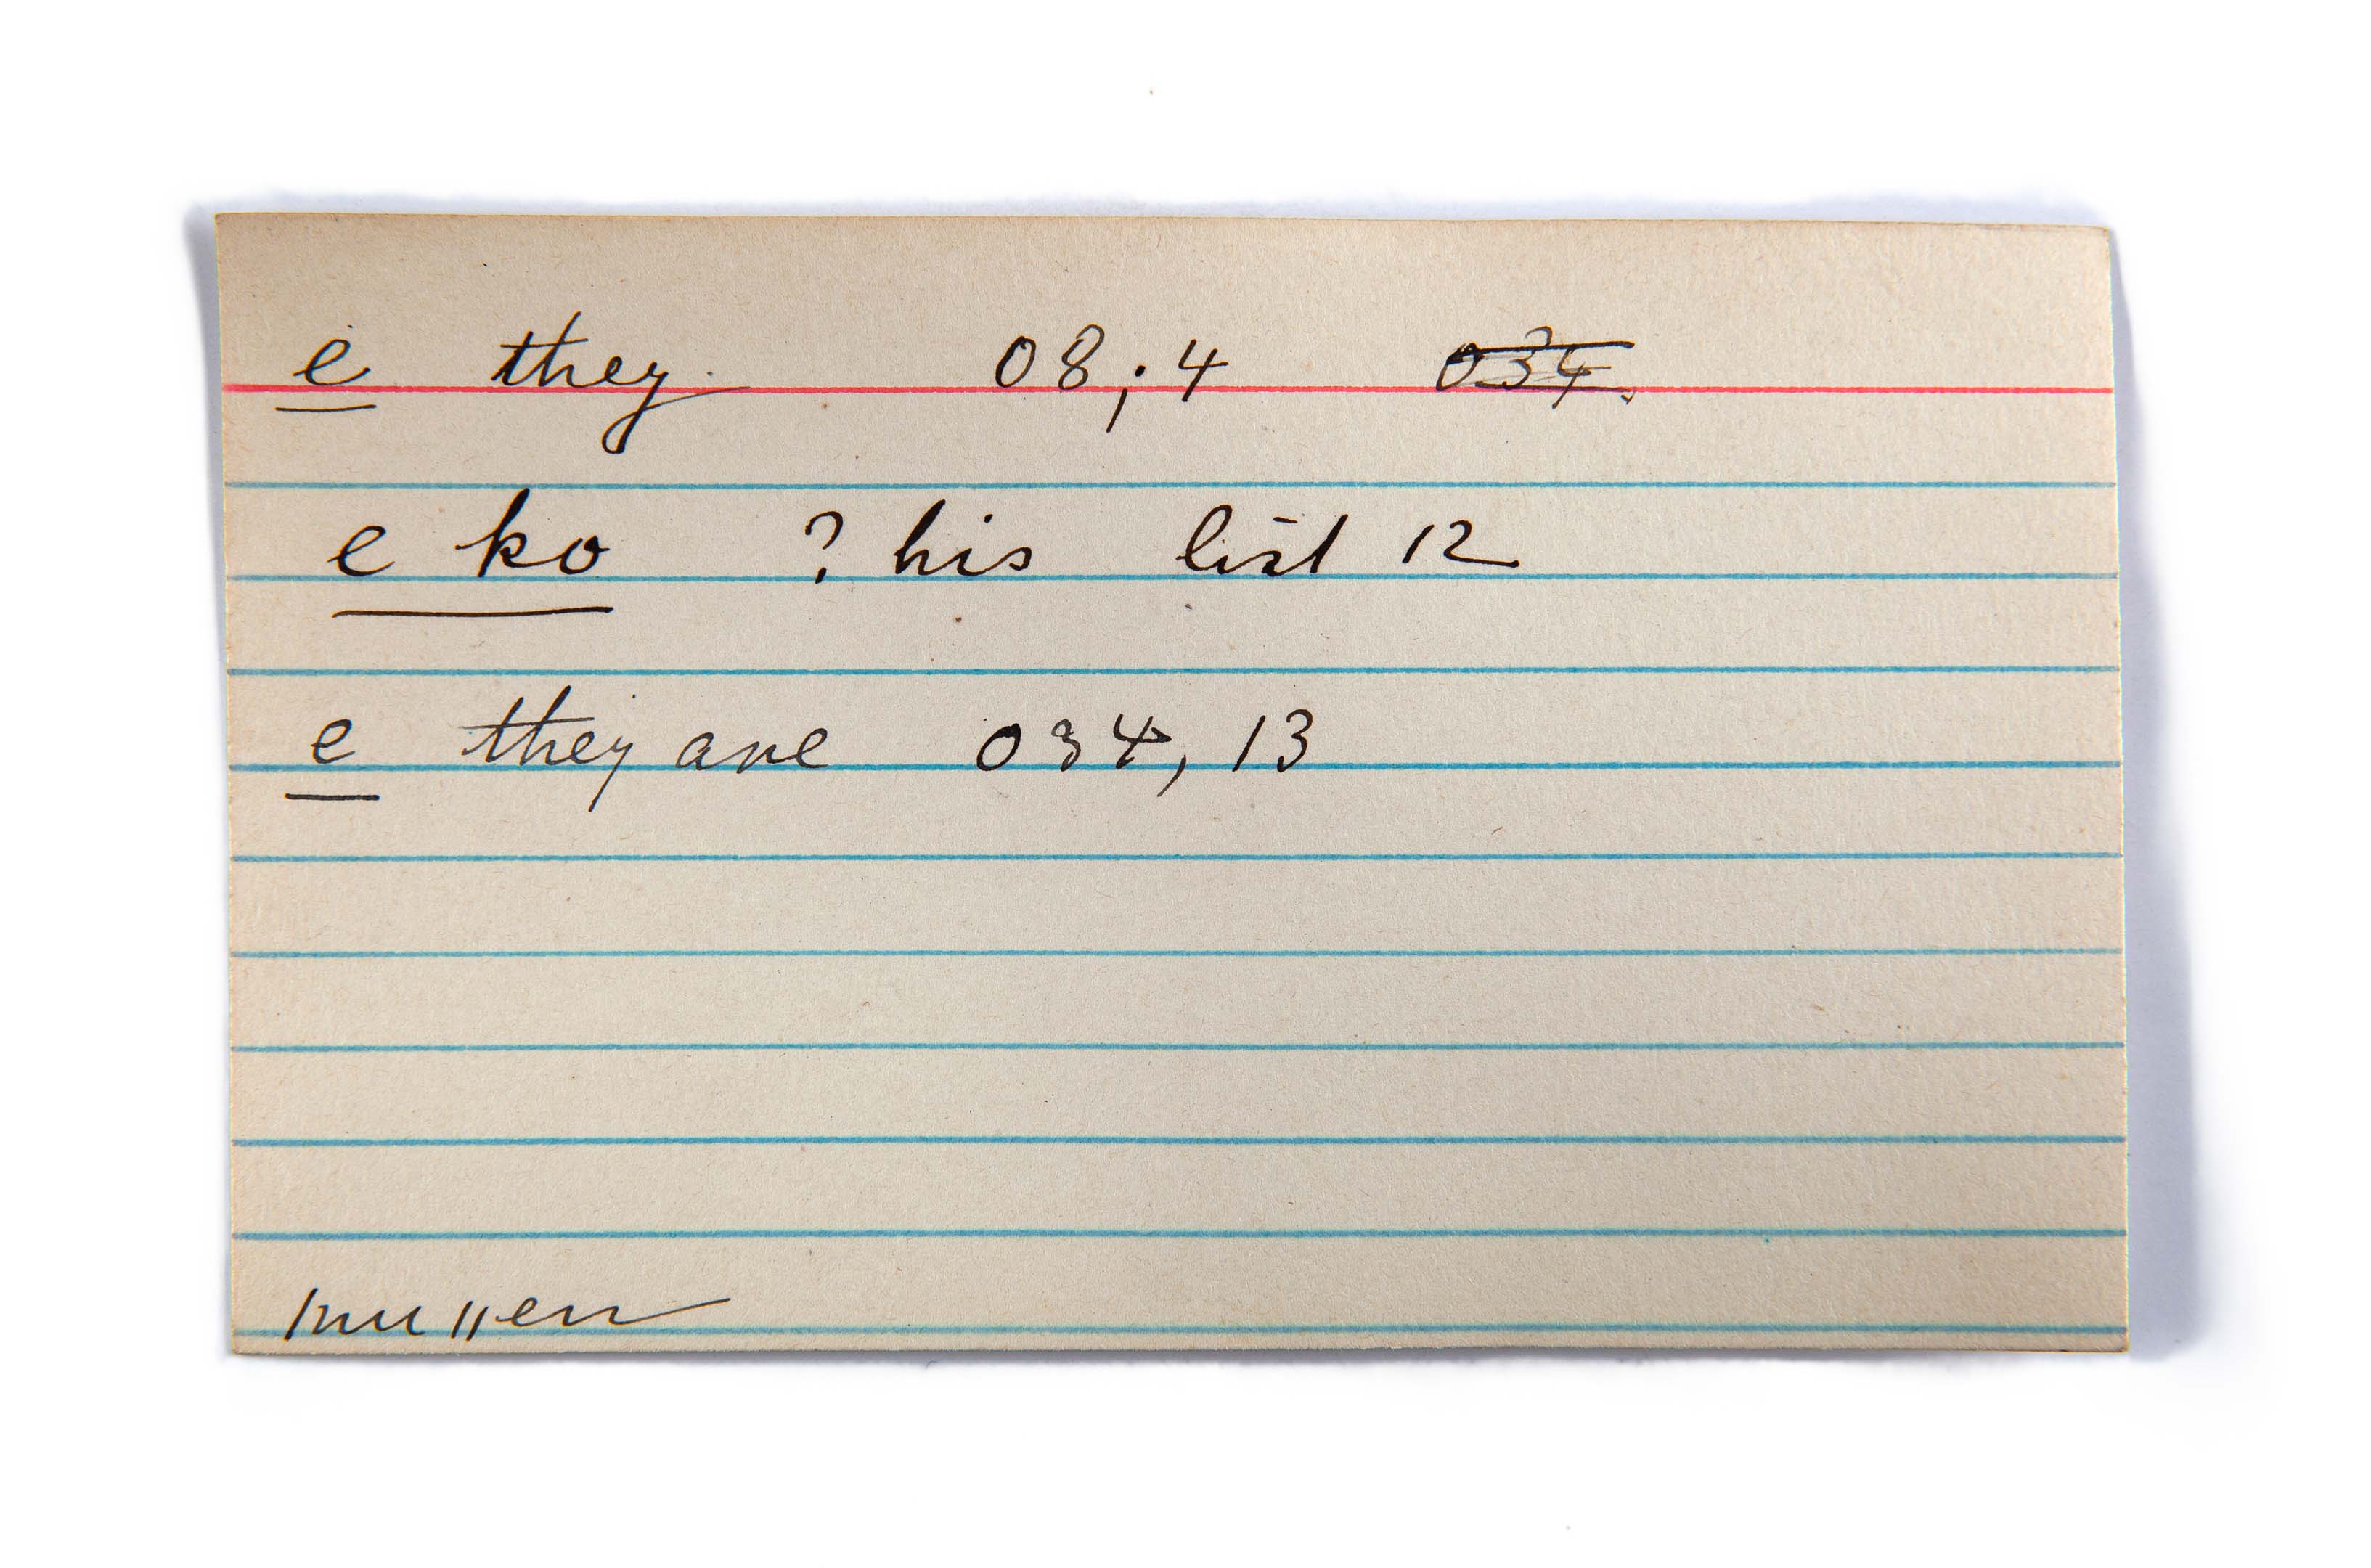 e they. 08; 4 034.
e ko ? his list 12
e they are 034, 13
mullen